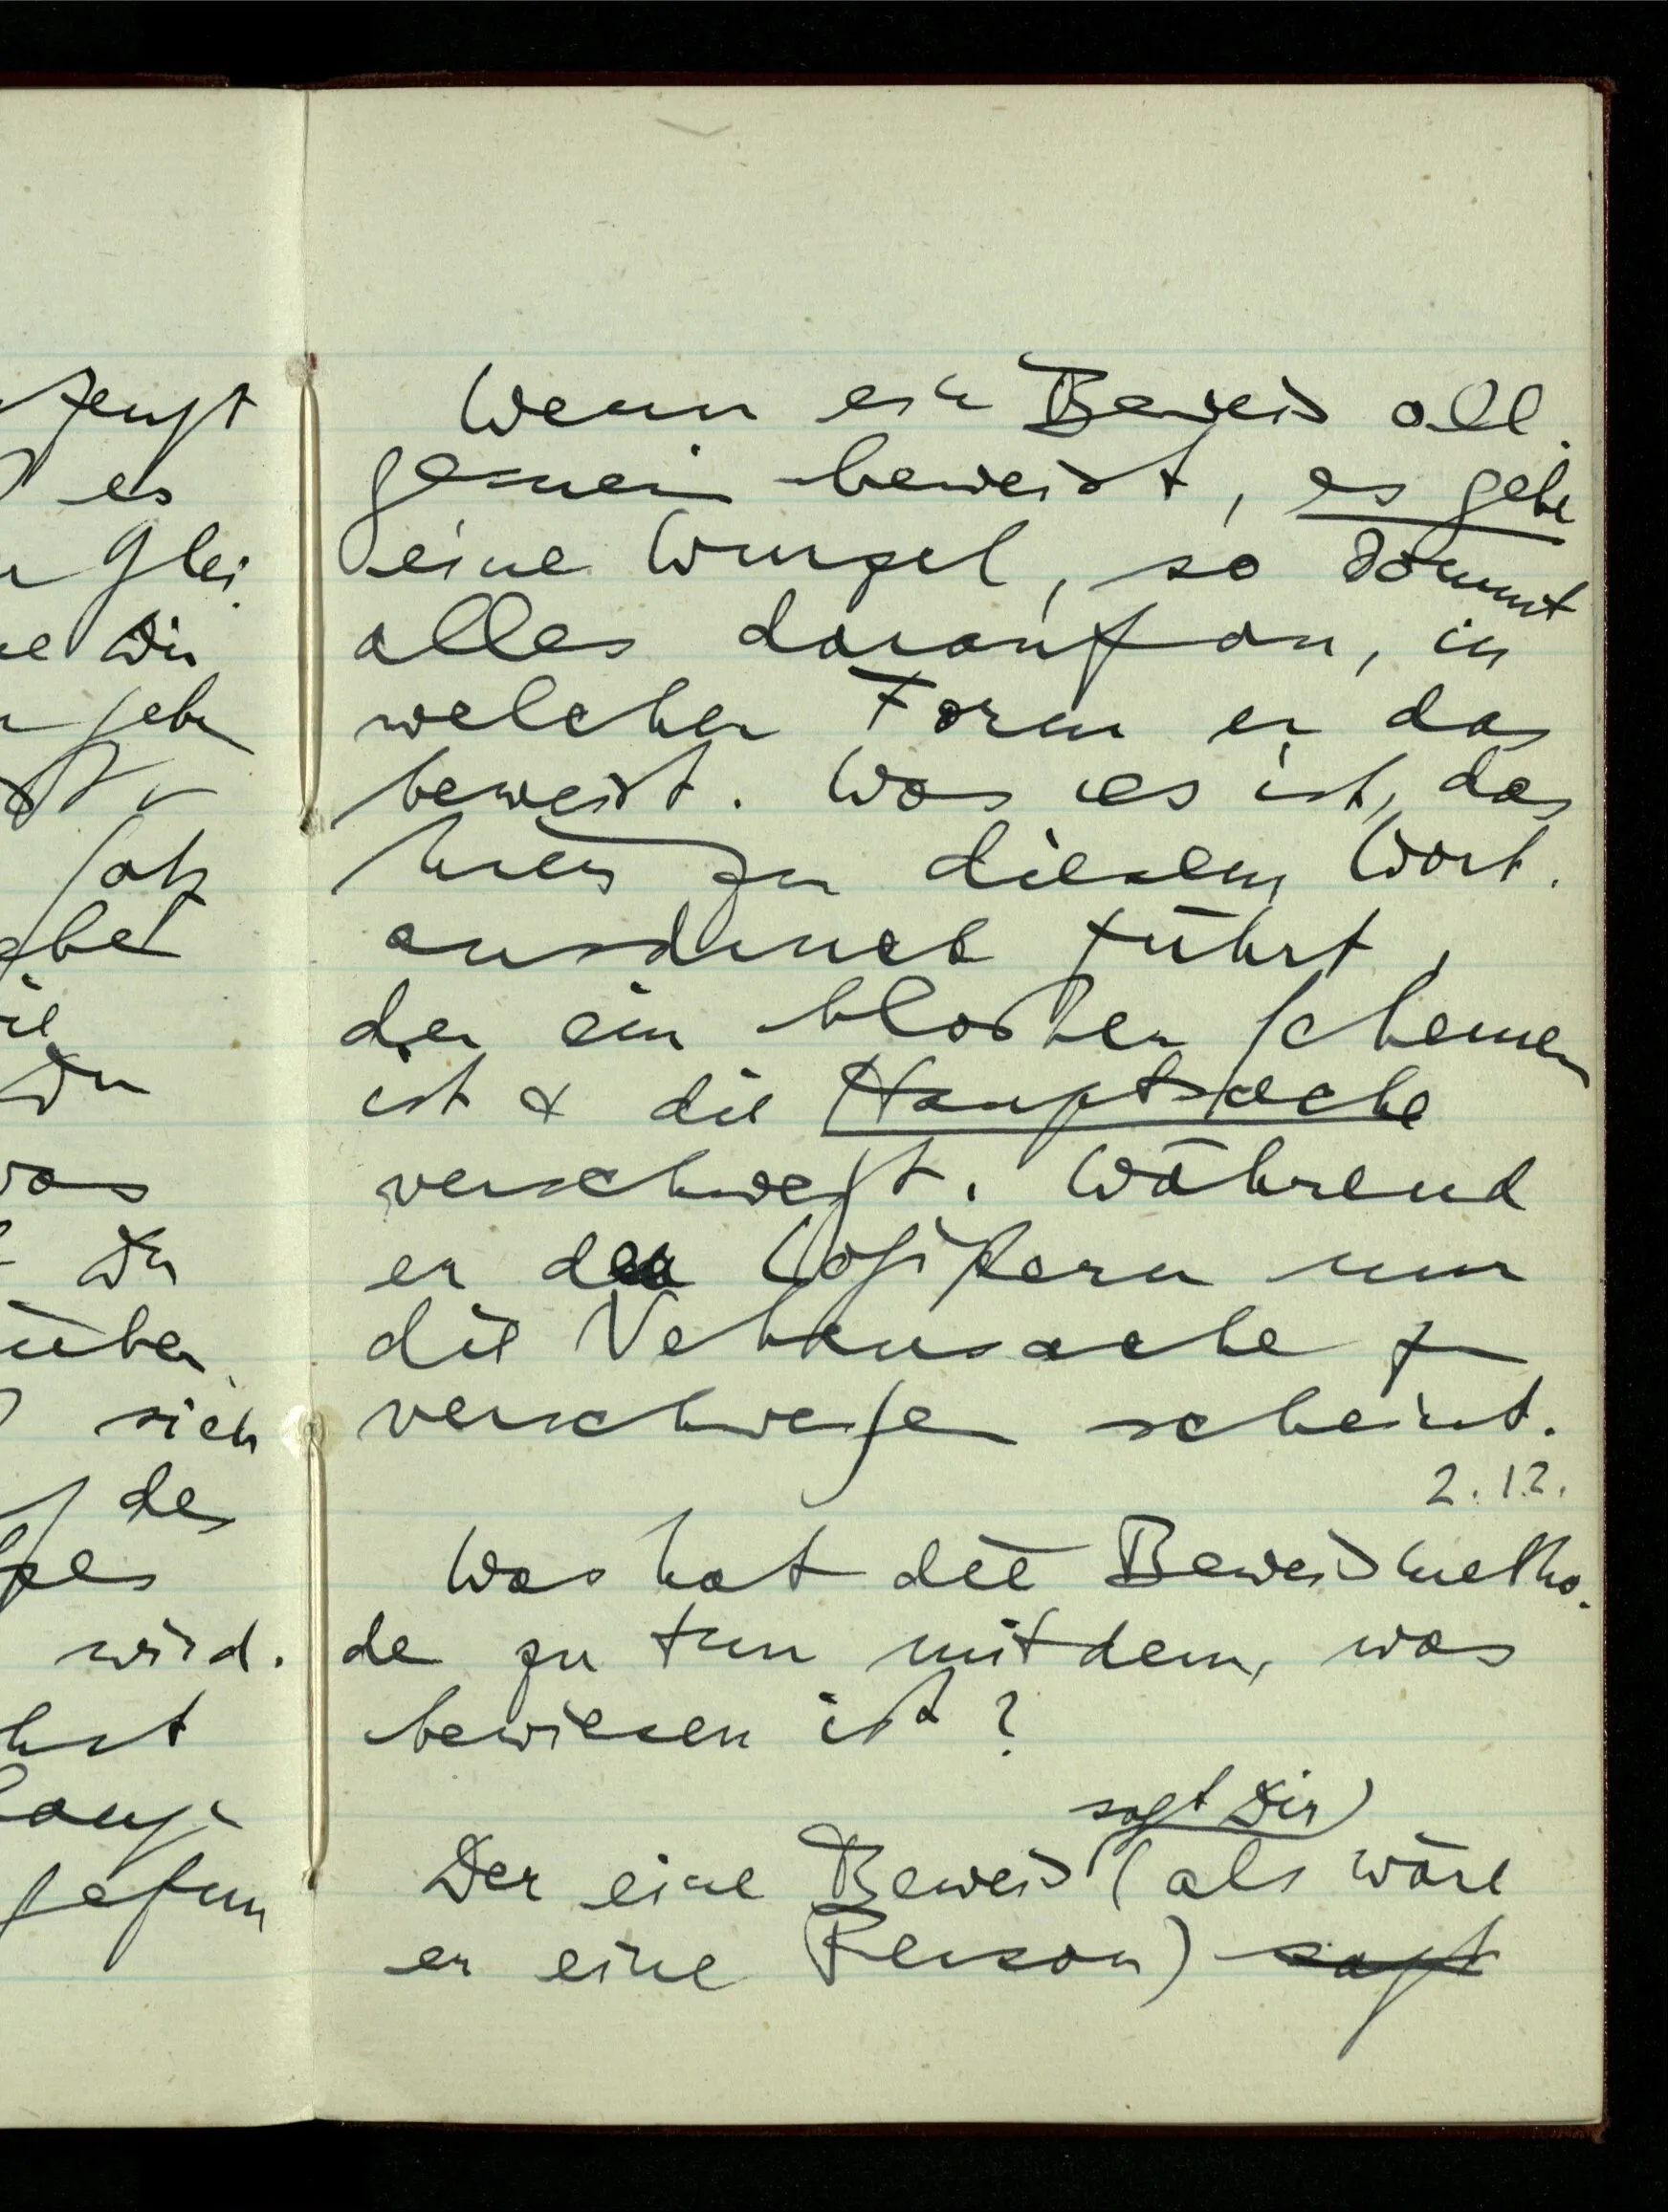 zeugt
es
Glei-
Dir
geben
Satz
gabe
Du
was
Du
über
sich
des
wird.
gefun
Wenn ein Beweis all-
gemein beweist, es gebe
eine Wurzel, so kommt
alles darauf an, in
welcher Form er das
beweist. Was es ist, das
hier zu diesem Wort-
ausdruck führt,
der ein bloßer Schemen
ist & die Hauptsache
verschweigt. Während
er den Logikern nur
die Nebensache zu
verschweigen scheint.
2.12.
Was hat die Beweismetho-
de zu tun mit dem, was
bewiesen ist?
sagt Dir
Der eine Beweis (als wäre
er eine Person) sagt